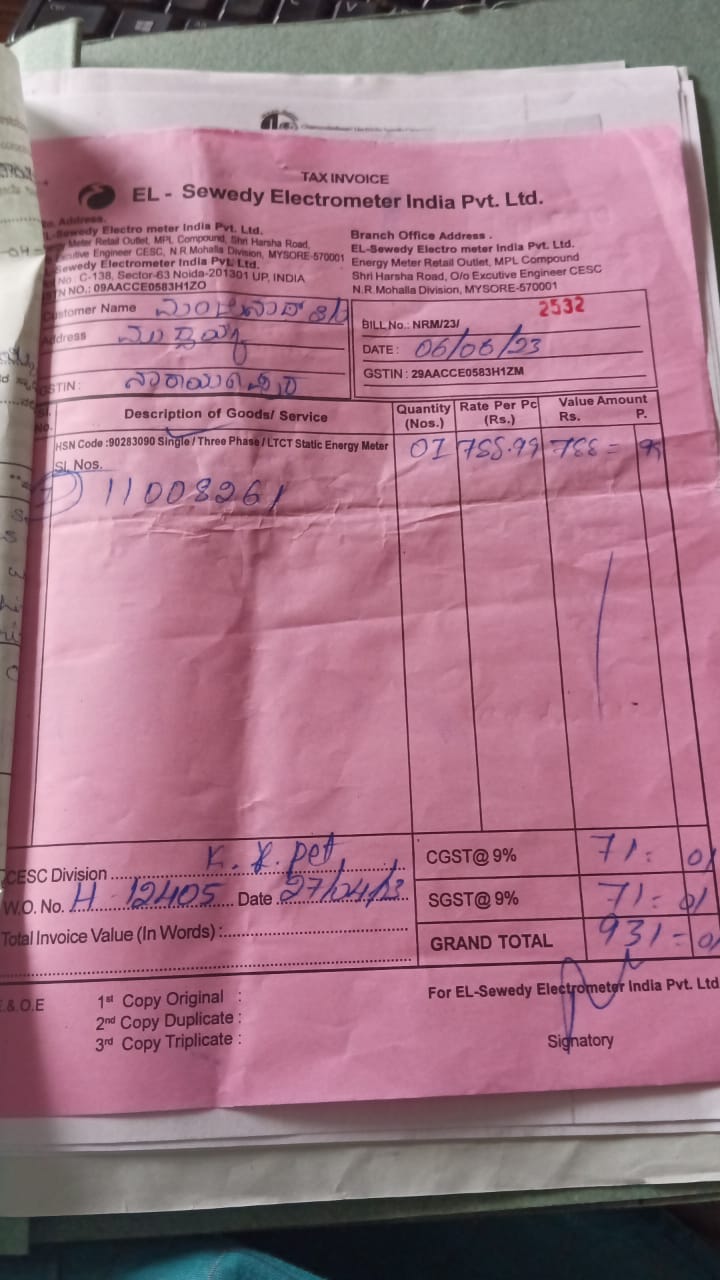 TAX INVOICE
EL - Sewedy Electrometer India Pvt. Ltd.
Address.
Sewedy Electro meter India Pvt. Ltd.
Meter Retail Outlet, MPL Compound, Shri Harsha Road,
Engineer CESC, N.R.Mohalla Division, MYSORE-570001
Sewedy Electrometer India Pvt. Ltd.
No. C-138, Sector-63 Noida-201301 UP, INDIA
NO.: 09AACCE0583H1ZO
Branch Office Address .
EL-Sewedy Electro meter India Pvt. Ltd.
Energy Meter Retail Outlet, MPL Compound
Shri Harsha Road, O/o Excutive Engineer CESC
N.R.Mohalla Division, MYSORE-570001
Customer Name
Address
GSTIN :
2532
BILL No.: NRM/23/
DATE : 06/06/23
GSTIN : 29AACCE0583H1ZM
Sl. No. Description of Goods/ Service Quantity (Nos.) Rate Per Pc (Rs.) Value Amount Rs. P.
HSN Code :90283090 Single / Three Phase / LTCT Static Energy Meter 01 788.99 788 = 99
SL Nos.
11008261
CESC Division K. R. pet
W.O. No. H 12405 Date 27/04/23
Total Invoice Value (In Words) :
CGST@ 9% 71 - 01
SGST@ 9% 71 - 01
GRAND TOTAL 931 - 01
E.&.O.E
1st Copy Original :
2nd Copy Duplicate :
3rd Copy Triplicate :
For EL-Sewedy Electrometer India Pvt. Ltd
Signatory